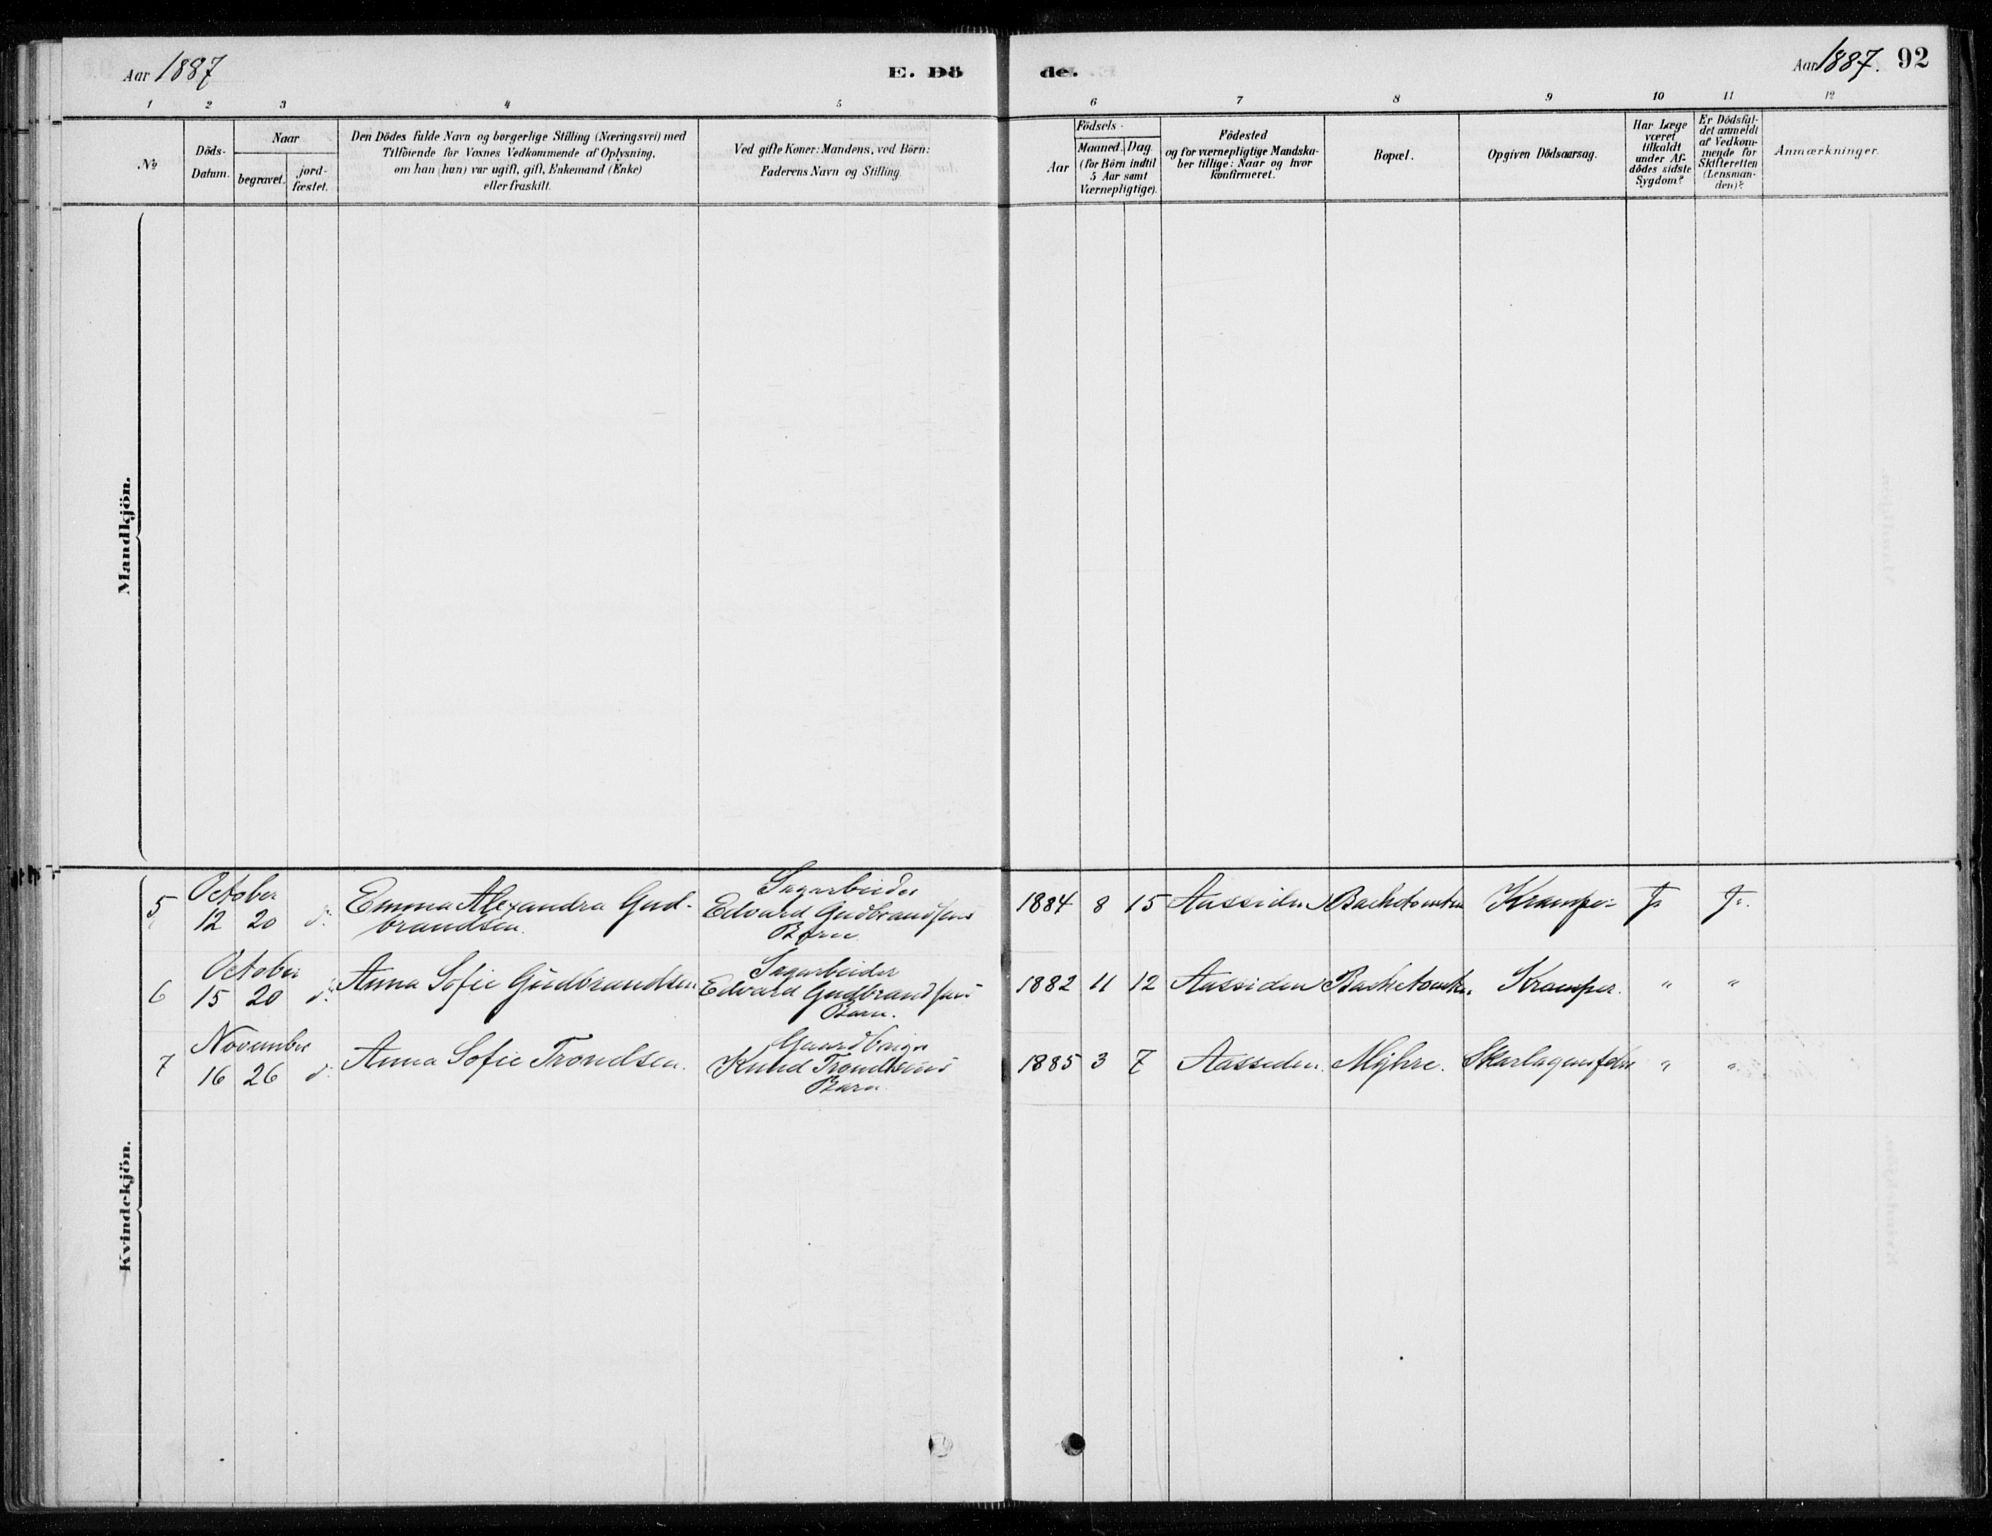 Aar 1887
E. Dö
de.
Aar 1887. 92
1 2 3 4 5 6 7 8 9 10 11 12
No
Döds-
Datum.
Naar
begravet.
jord-
fæstet.
Den Dödes fulde Navn og borgerlige Stilling (Næringsvei) med
Tilföiende for Voxnes Vedkommende af Oplysning,
om han (hun) var ugift, gift, Enkemand (Enke)
eller fraskilt.
Ved gifte Koner: Mandens, ved Börn:
Faderens Navn og Stilling.
Födsels-
Aar
Maaned.
Dag.
(for Börn indtil
5 Aar samt
Værnepligtige).
Födested
og for værnepligtige Mandska-
ber tillige: Naar og hvor
konfirmeret.
Bopæl.
Opgiven Dödsaarsag.
Har Læge
været
tilkaldt
under Af-
dödes sidste
Sygdom?
Er Dödsfal-
det anmeldt
af Vedkom-
mende for
Skifteretten
(Lensman-
den)?
Anmærkninger.
Mandkjön.
Kvindekjön.
October Sagarbeider
5 12 20 d: Emma Alexandra Gud- Edvard Gudbrandsens 1884 8 15 Aassiden Baketomten Krampe Ja Ja.
brandsen. Barn
October Sagarbeider
6 15 20 d: Anna Sofie Gudbrandsen Edvard Gudbrandsens 1882 11 12 Aassiden Kramper. " "
Barn.
November Gaardbruger
7 16 26 d: Anna Sofie Trondsen. Knud Trondsens 1885 3 7 Aassiden. Myhre. Skarlagensfeber " "
Barn.